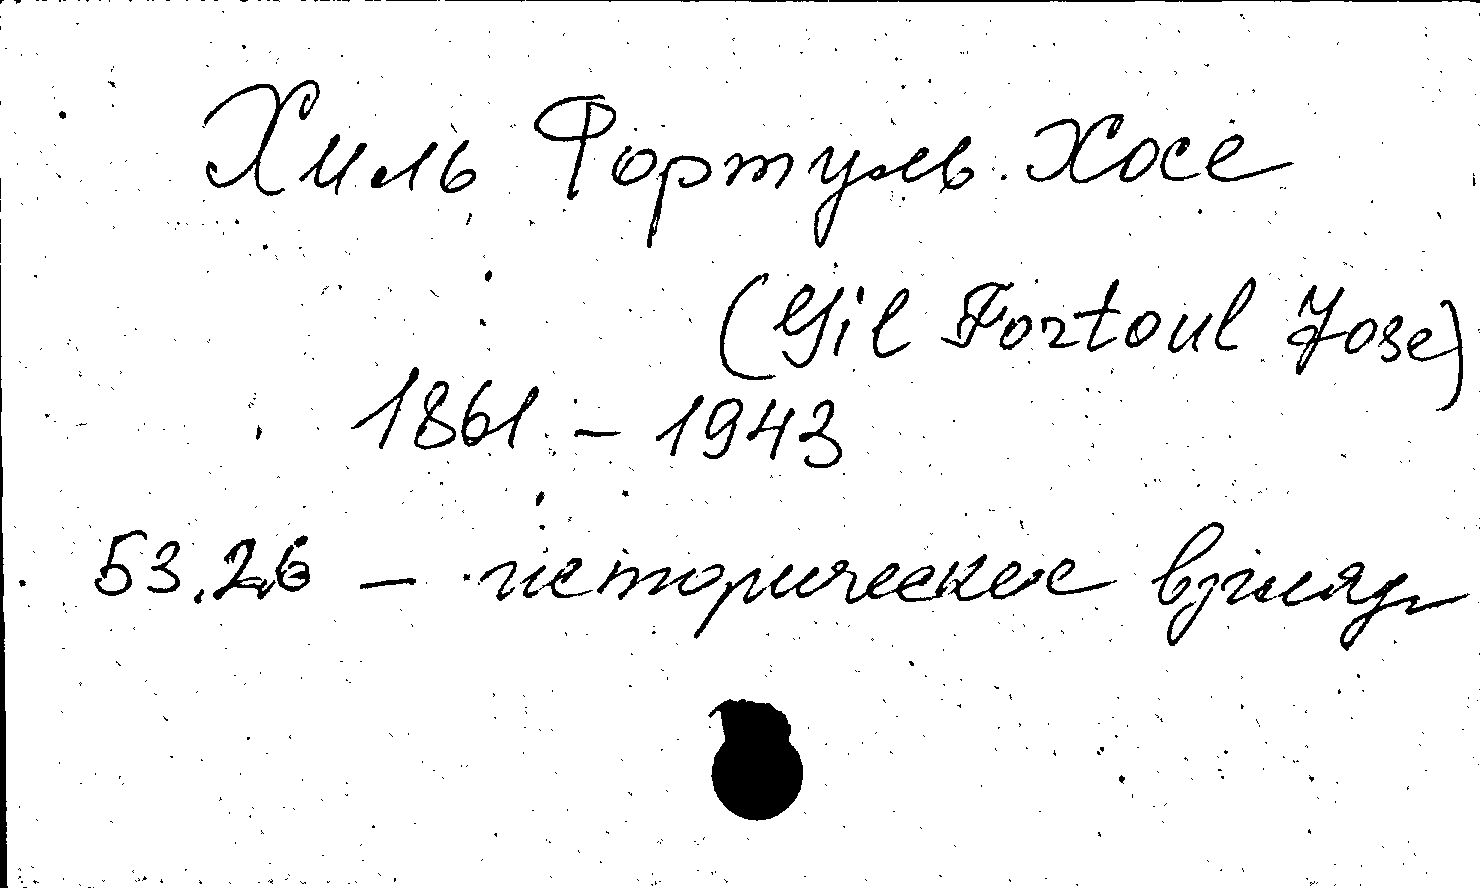 Хиль Фортуль Хосе
(Gil Fortoul Jose)
1861 – 1943
53.26 – исторические взгляды